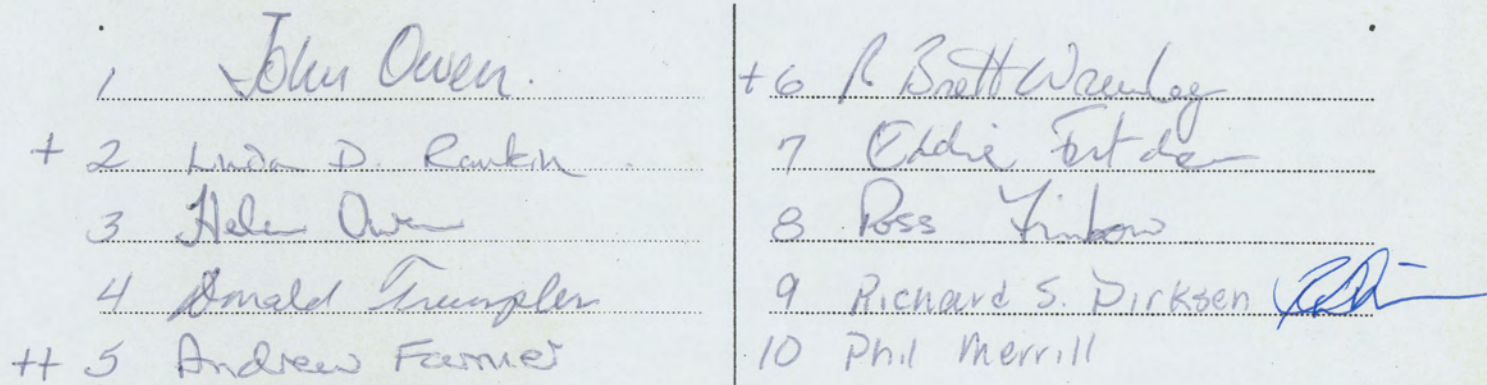 1 John Owen.
+ 2 Linda D. Rankin
3 Helen Owen
4 Donald Trumpler
++ 5 Andrew Farmer
+ 6 R Brett
7 Eddie
8 Ross Finbow
9 Richard S. Dirksen
10 Phil Merrill